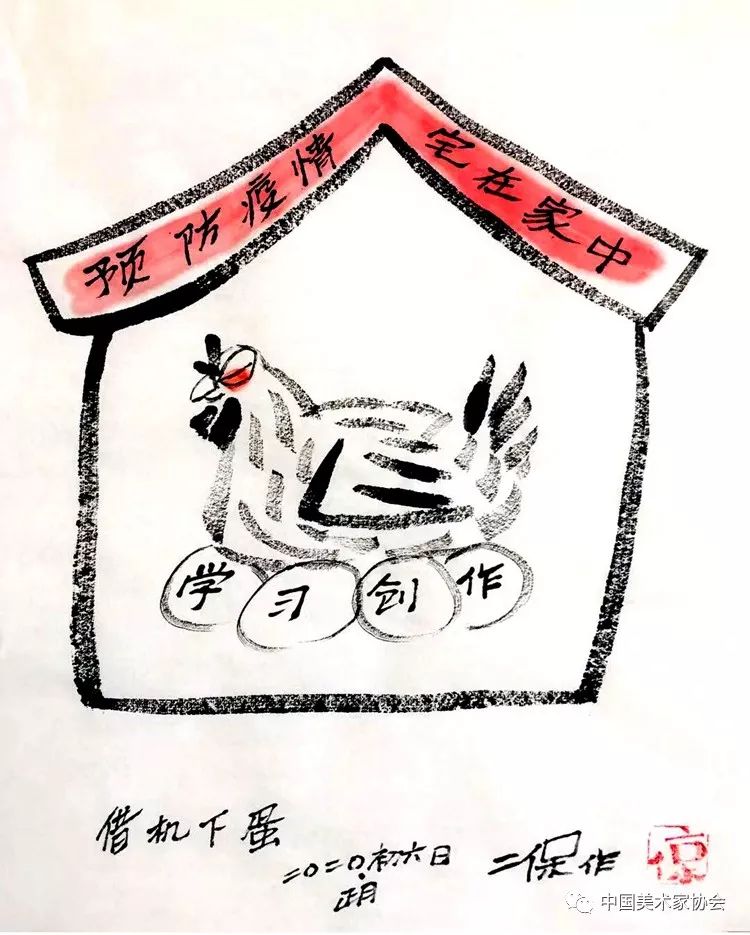 预防疫情
宅在家中
学习创作
借机下蛋
二〇二〇初六日
正月
二保作
中国美术家协会